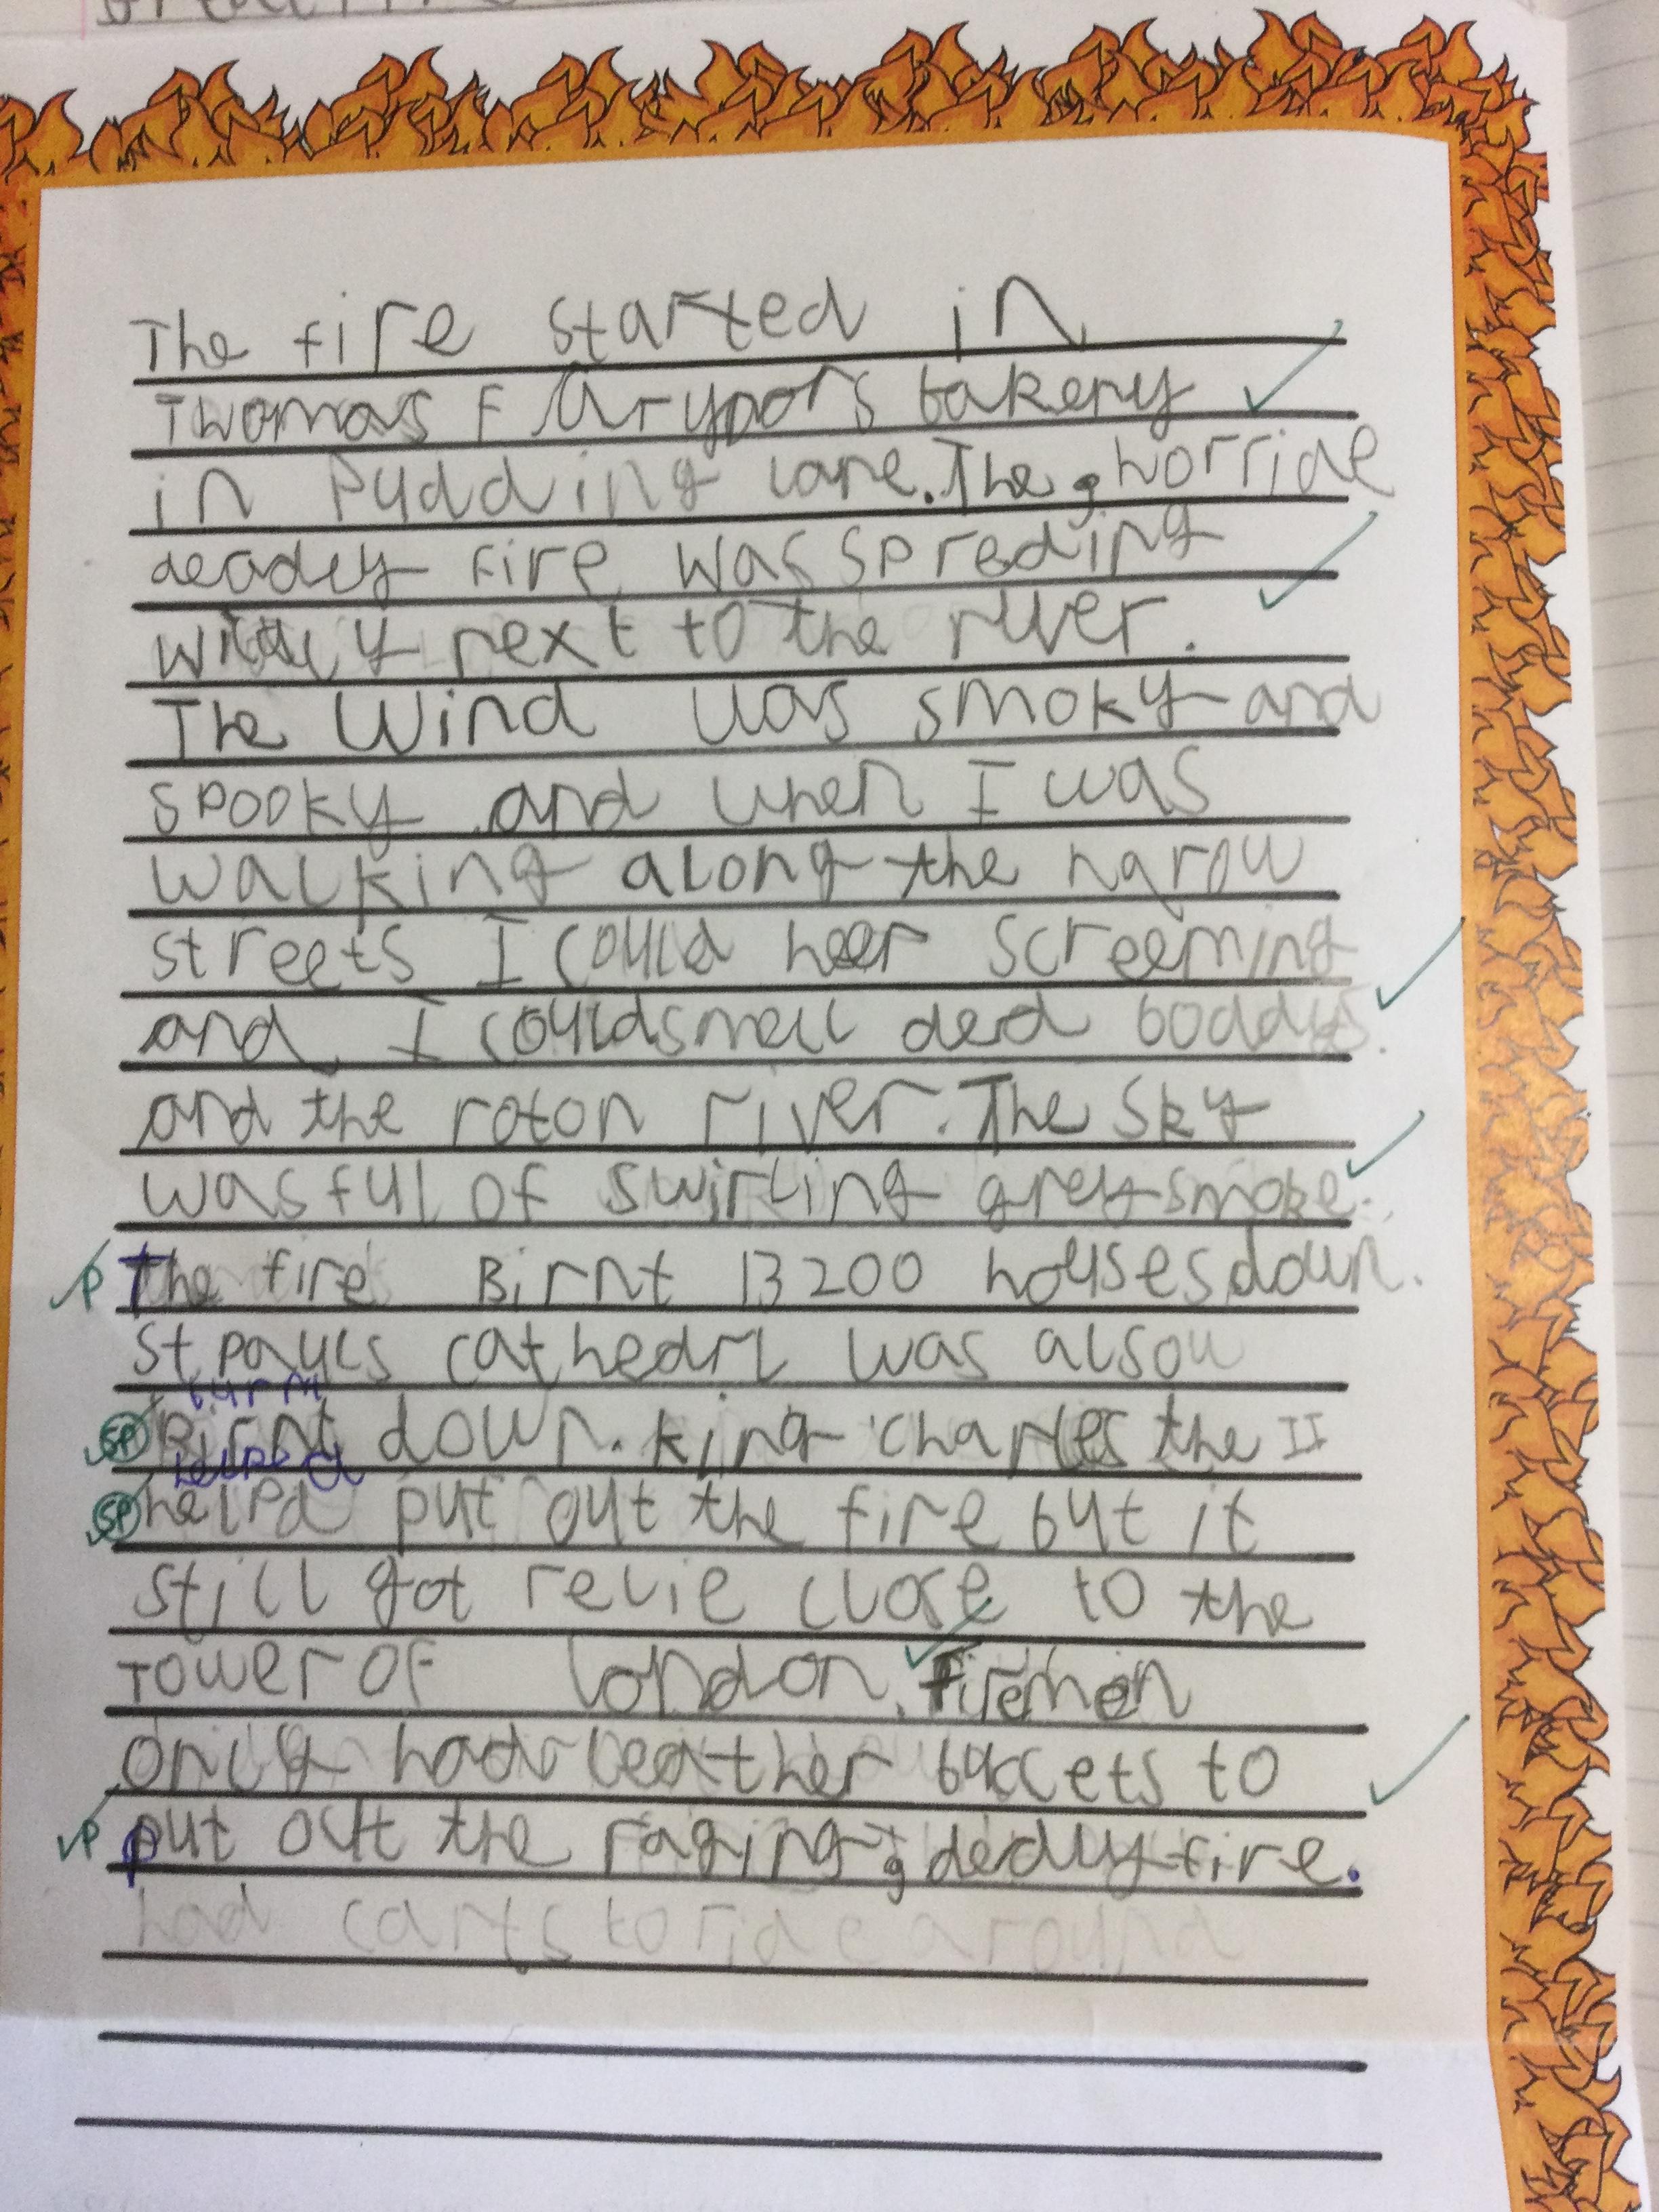 The fire started in
Thomas Farynors bakery
in Pudding lane. The , horride
deadly fire was spreding
wildly next to the river.
The Wind was smoky and
spooky and when I was
walking along the narow
streets I could heer screeming
and I could smell ded boddys
and the roton river. The sky
was ful of swirling grey smoke.
P The fire Birnt 13200 houses down.
St pauls cathedrl was alsow
burnt
SP Birnt down. king charles the II
helped
SP helpd put out the fire but it
still got relie close to the
Tower of london. Firemen
only had leather buccets to
P put out the raging , dedly fire.
had carts to ride around